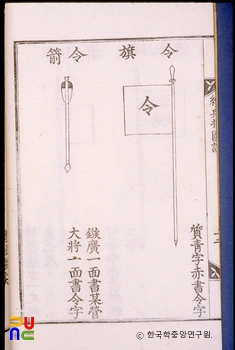 令旗
令
質青字赤書令字
令箭
鏃廣一面書某營
大將一面書令字
FUNC
© 한국학중앙연구원.